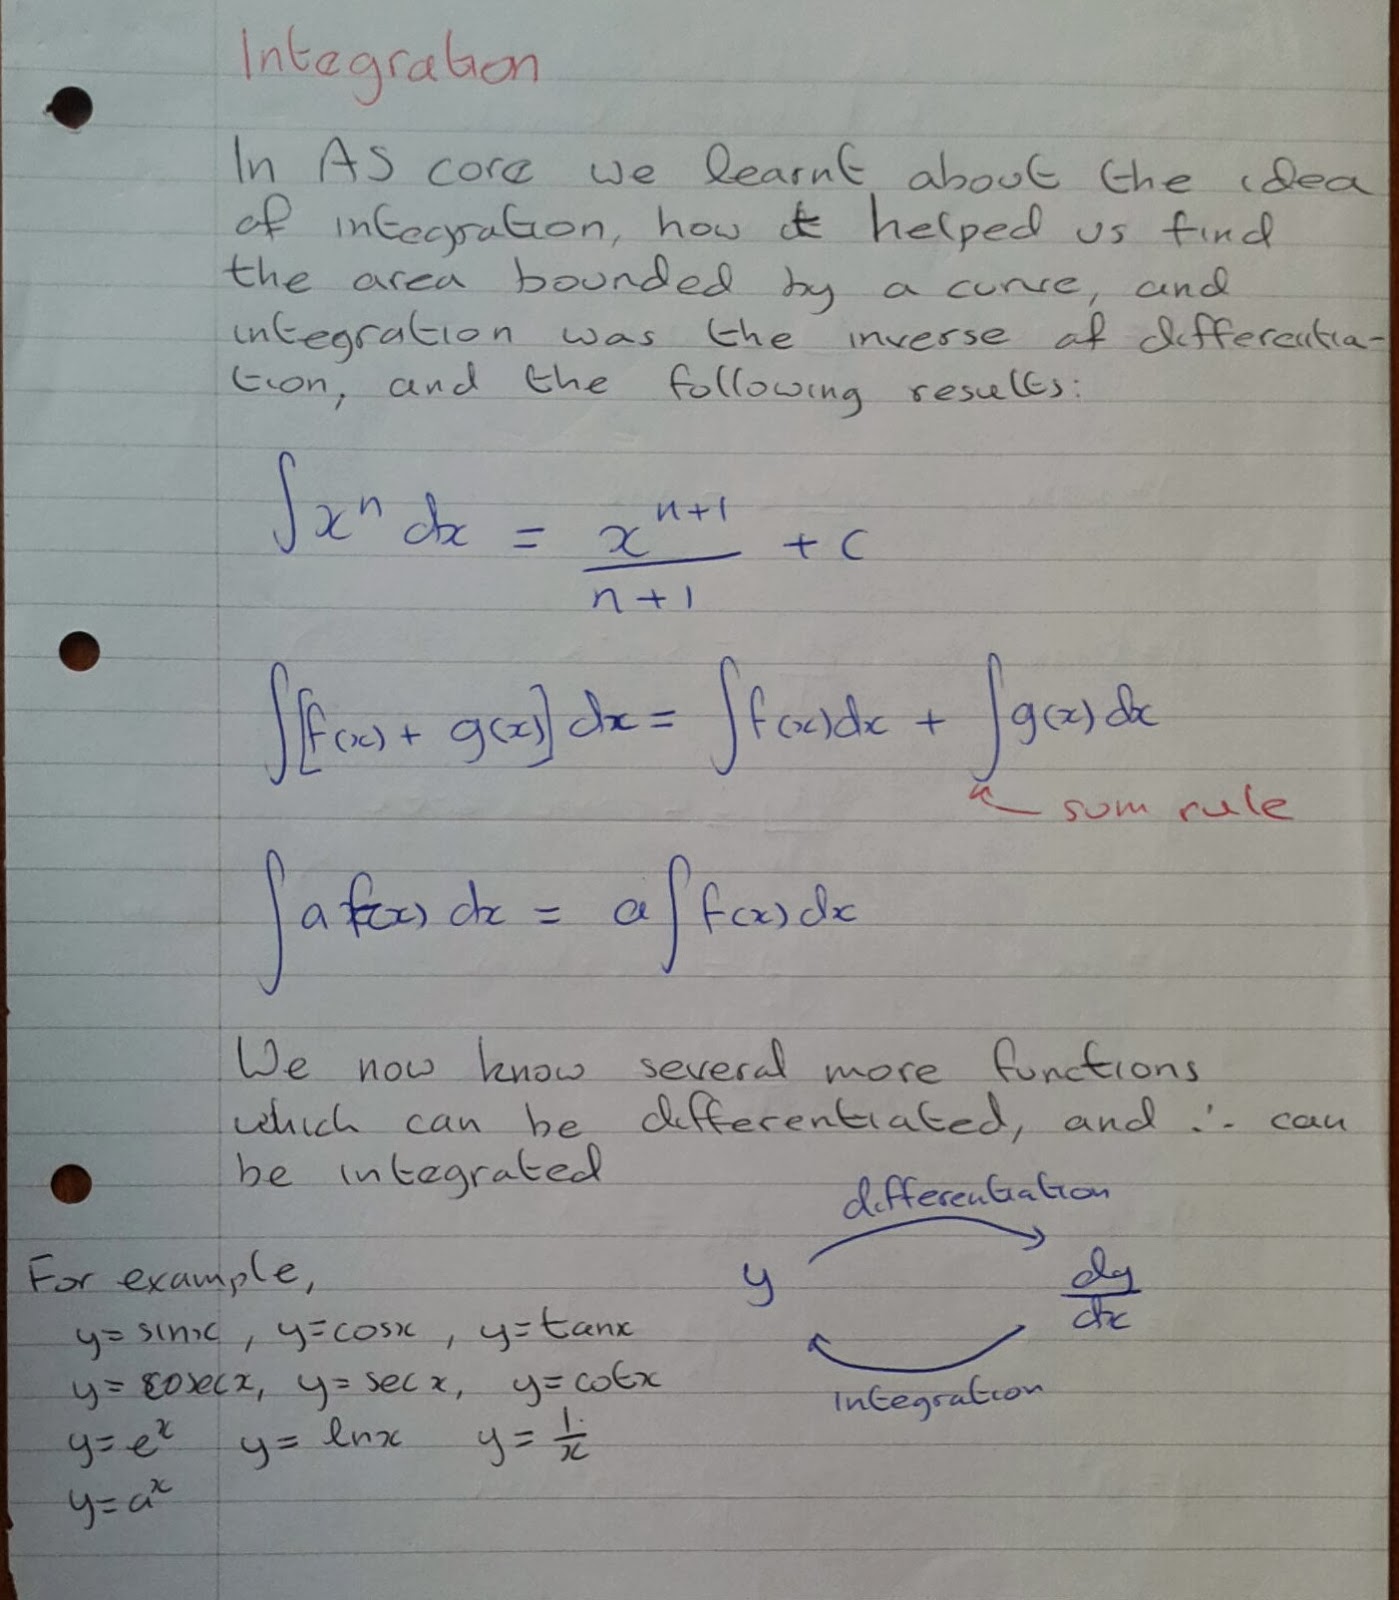 Integration
In AS core we learnt about the idea
of integration, how it helped us find
the area bounded by a curve, and
integration was the inverse of differentia-
tion, and the following results:
∫xⁿ dx = xⁿ⁺¹/(n+1) + c
∫[f(x) + g(x)] dx = ∫f(x)dx + ∫g(x) dx
sum rule
∫a f(x) dx = a∫f(x) dx
We now know several more functions
which can be differentiated, and ∴ can
be integrated
differentiation
y dy/dx
integration
For example,
y=sinx, y=cosx, y=tanx
y=cosecx, y=secx, y=cotx
y=eˣ y=lnx y=1/x
y=aˣ